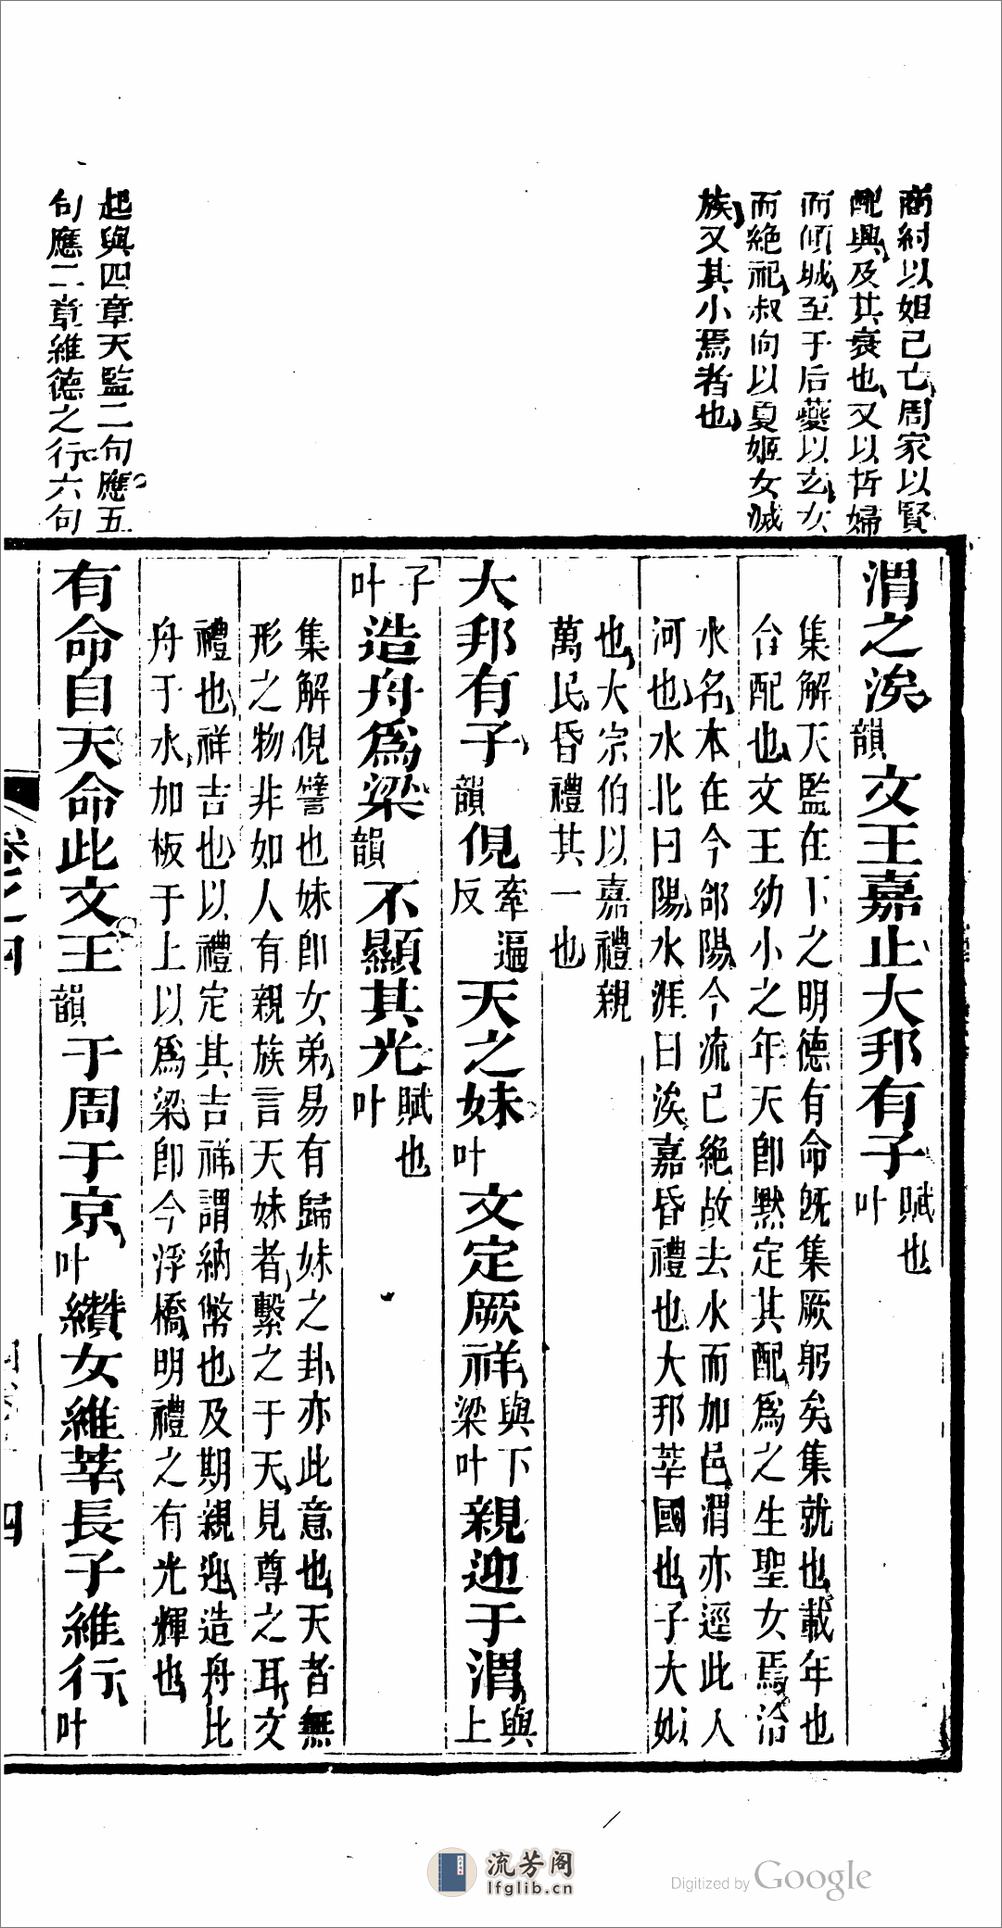 商紂以妲己亡周家以賢
配興及其衰也又以哲婦
而傾城至于后夔以玄女
而絶祀叔向以夏姬女滅
族又其小焉者也
起與四章天監二句應五
句應二章維德之行六句
渭之涘韻文王嘉止大邦有子叶賦也
集解天監在下之明德有命旣集厥躬矣集就也載年也
合配也文王幼小之年天卽默定其配爲之生聖女焉洽
水名本在今郃陽今流已絶故去水而加邑渭亦逕此入
河也水北曰陽水涯曰涘嘉昏禮也大邦莘國也子大姒
也大宗伯以嘉禮親
萬民昏禮其一也
大邦有子韻俔牽遍反天之妹叶文定厥祥與下梁叶親迎于渭與上
子叶造舟爲梁韻不顯其光叶賦也
集解俔譬也妹卽女弟易有歸妹之卦亦此意也天者無
形之物非如人有親族言天妹者繫之于天見尊之耳文
禮也祥吉也以禮定其吉祥謂納幣也及期親迎造舟比
舟于水加板于上以爲梁卽今浮橋明禮之有光輝也
有命自天命此文王韻于周于京叶纘女維莘長子維行叶
流芳阁
lfglib.cn
Digitized by Google